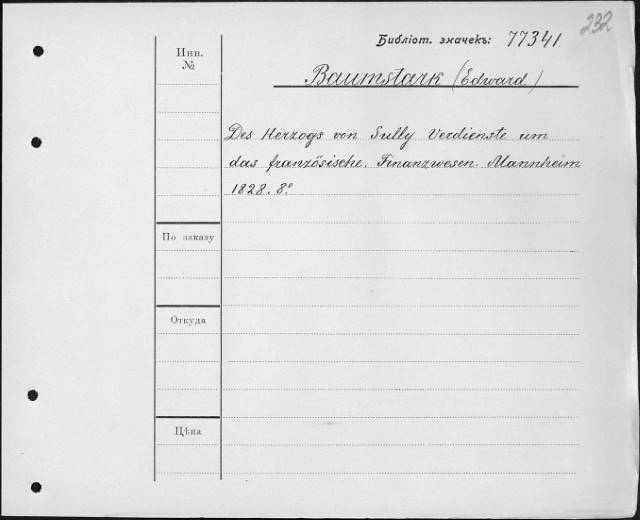 232
Библіот. значекъ: 77341.
Инв.
№
Baumstark (Edward)
Des Herzogs von Sully Verdienste um
das französische. Finanzwesen. Mannheim
1828. 8º
По заказу
Откуда
Цѣна